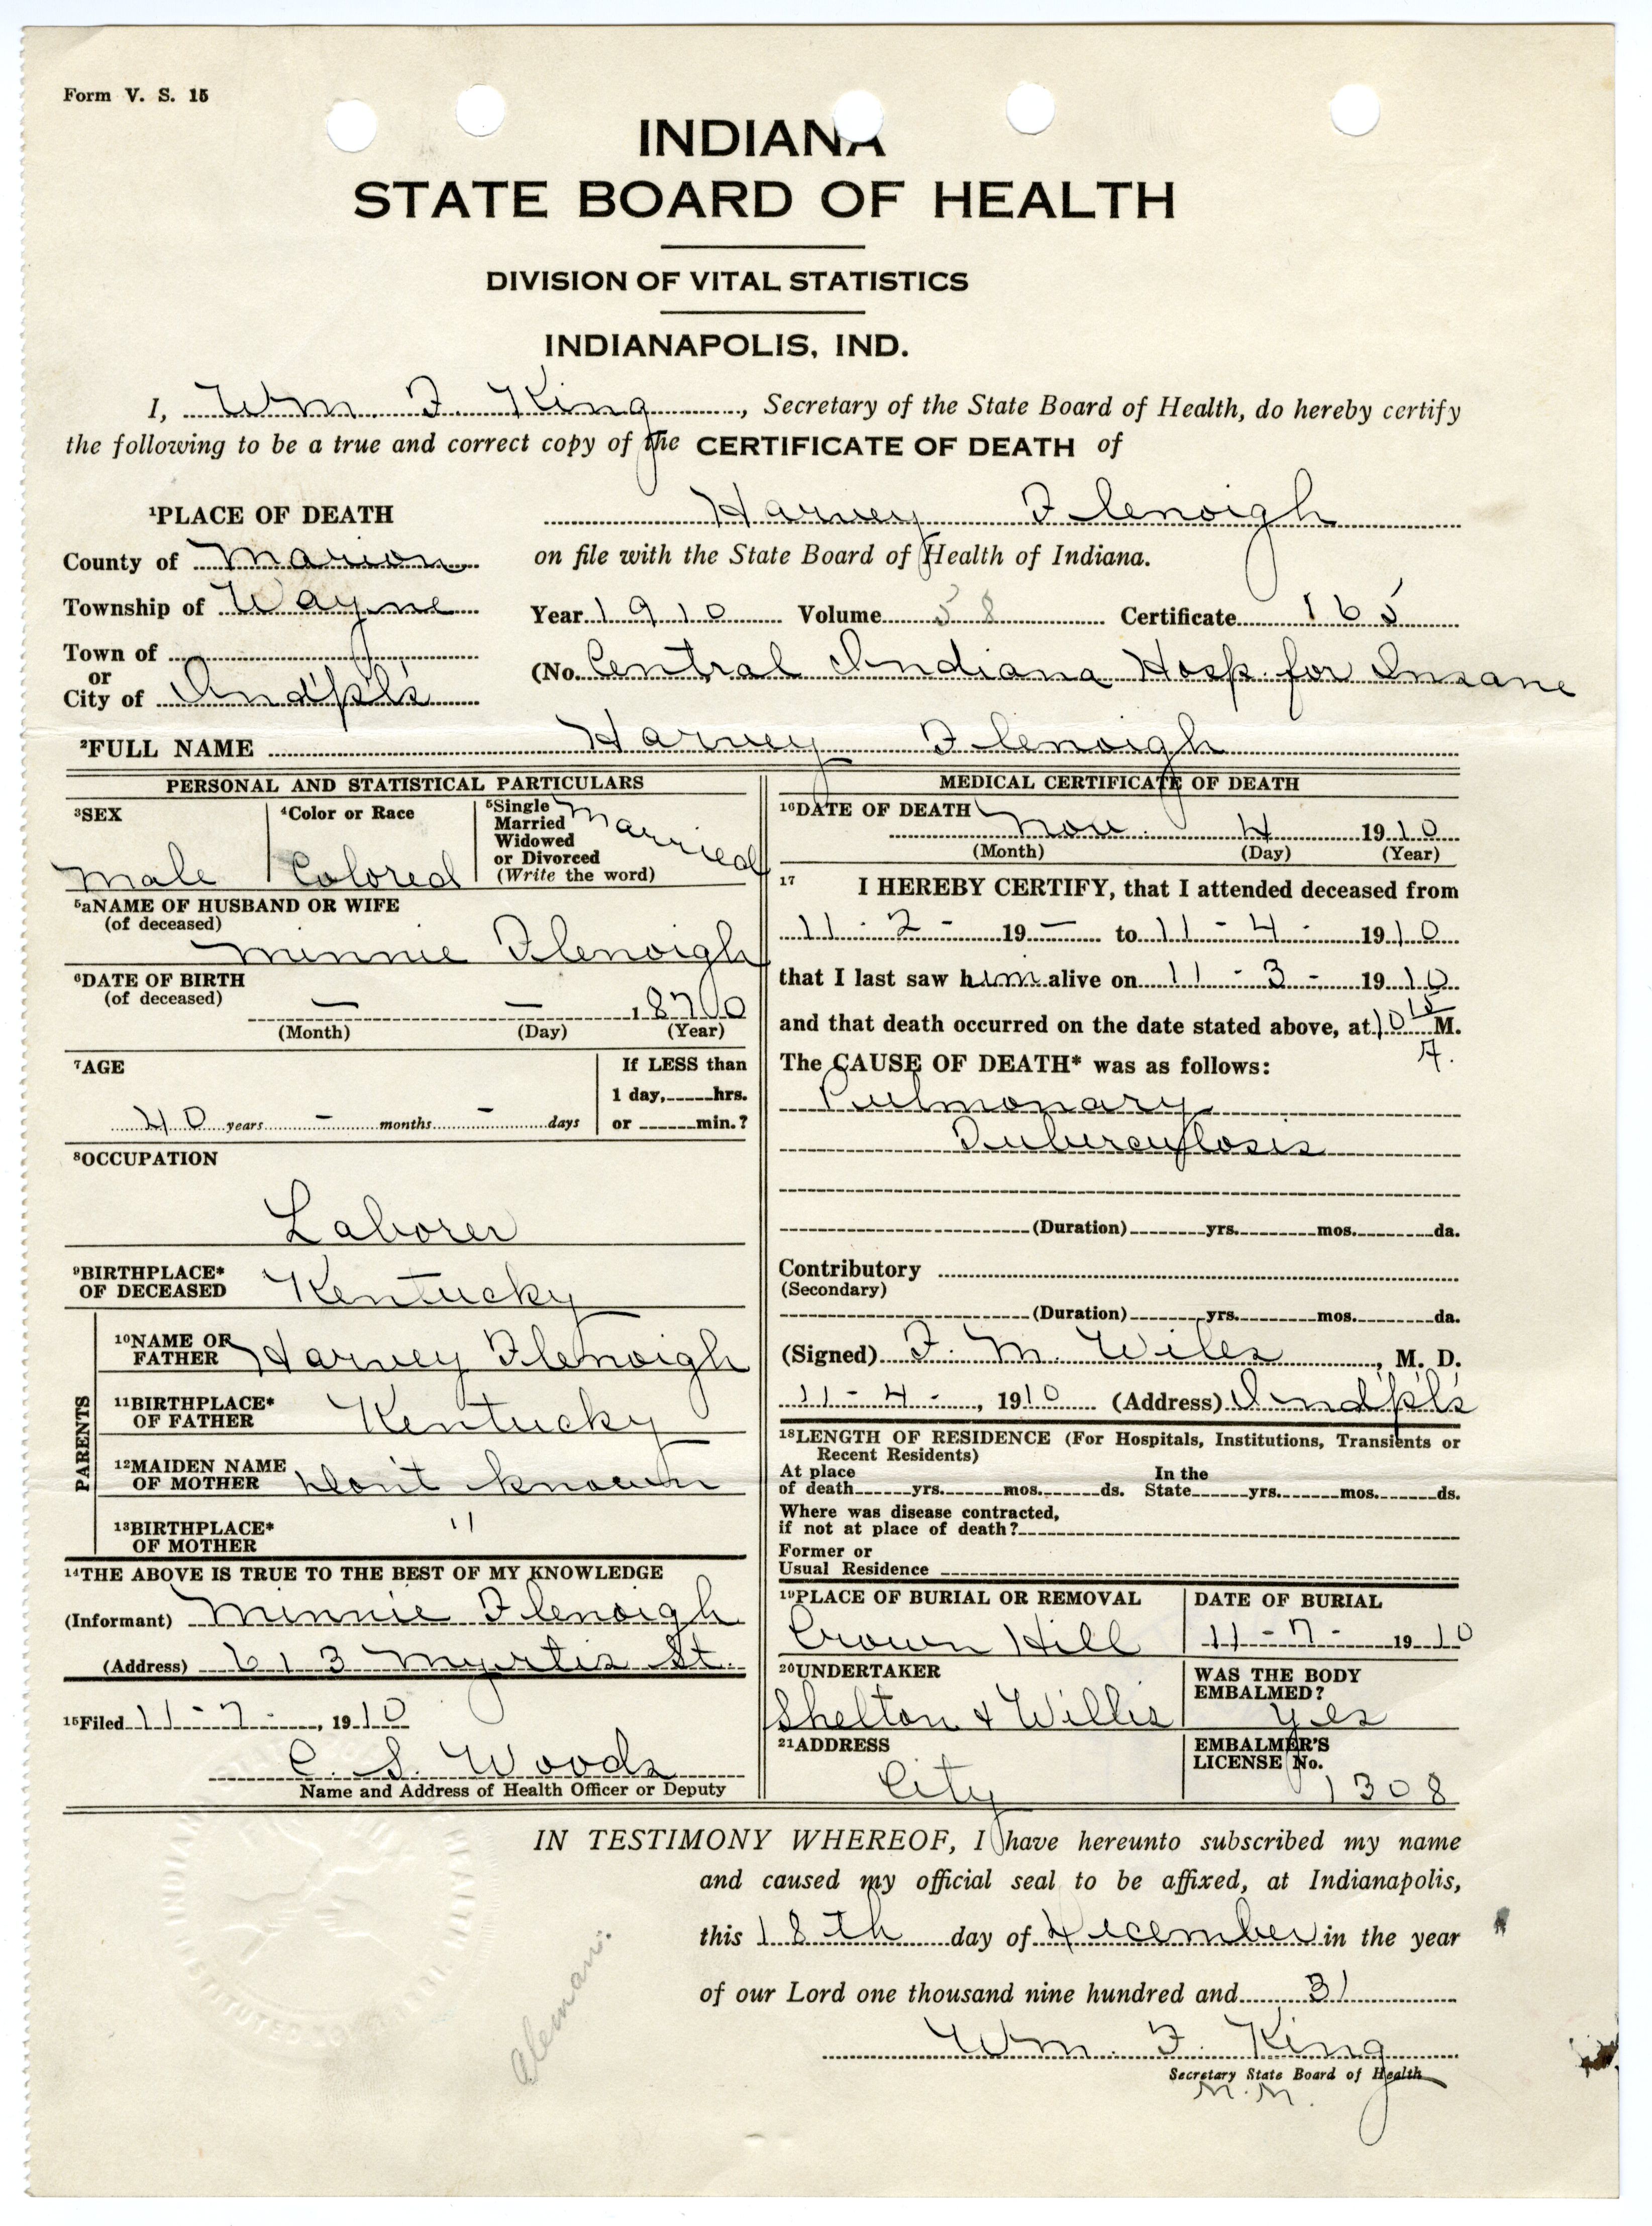 Form V. S. 15
INDIANA
STATE BOARD OF HEALTH
DIVISION OF VITAL STATISTICS
INDIANAPOLIS, IND.
I, Wm. F. King, Secretary of the State Board of Health, do hereby certify
the following to be a true and correct copy of the CERTIFICATE OF DEATH of
Harvey Flenoigh
on file with the State Board of Health of Indiana.
1PLACE OF DEATH
County of Marion
Township of Wayne
Town of
or
City of Ind'pl's
Year 1910 Volume 58 Certificate 165
(No. Central Indiana Hosp. for Insane
2FULL NAME Harvey Flenoigh
PERSONAL AND STATISTICAL PARTICULARS
3SEX
Male
4Color or Race
Colored
5Single
Married
Widowed
or Divorced
(Write the word)
Married
5aNAME OF HUSBAND OR WIFE
(of deceased)
Minnie Flenoigh
6DATE OF BIRTH
(of deceased)
— — 1870
(Month) (Day) (Year)
7AGE
40 years - months - days
If LESS than
1 day, hrs.
or min.?
8OCCUPATION
Laborer
9BIRTHPLACE*
OF DECEASED Kentucky
PARENTS
10NAME OF
FATHER Harvey Flenoigh
11BIRTHPLACE*
OF FATHER Kentucky
12MAIDEN NAME
OF MOTHER Don't known
13BIRTHPLACE*
OF MOTHER "
14THE ABOVE IS TRUE TO THE BEST OF MY KNOWLEDGE
(Informant) Minnie Flenoigh
(Address) 613 Myrtis St.
15Filed 11-7-, 1910
C. S. Woods
Name and Address of Health Officer or Deputy
MEDICAL CERTIFICATE OF DEATH
16DATE OF DEATH
Nov. 4 1910
(Month) (Day) (Year)
17 I HEREBY CERTIFY, that I attended deceased from
11-2- 19— to 11-4- 1910
that I last saw him alive on 11-3- 1910
and that death occurred on the date stated above, at 10 15 M.
A.
The CAUSE OF DEATH* was as follows:
Pulmonary
Tuberculosis
(Duration) yrs. mos. da.
Contributory
(Secondary)
(Duration) yrs. mos. da.
(Signed) F. M. Wiles, M. D.
11-4-, 1910 (Address) Ind'pl's
18LENGTH OF RESIDENCE (For Hospitals, Institutions, Transients or
Recent Residents)
At place
of death yrs. mos. ds.
In the
State yrs. mos. ds.
Where was disease contracted,
if not at place of death?
Former or
Usual Residence
19PLACE OF BURIAL OR REMOVAL
Crown Hill
DATE OF BURIAL
11-7- 1910
20UNDERTAKER
Shelton & Willis
WAS THE BODY
EMBALMED?
yes
21ADDRESS
City
EMBALMER'S
LICENSE No.
1308
IN TESTIMONY WHEREOF, I have hereunto subscribed my name
and caused my official seal to be affixed, at Indianapolis,
this 18th day of December in the year
of our Lord one thousand nine hundred and 31
Wm. F. King
Secretary State Board of Health
M. M.